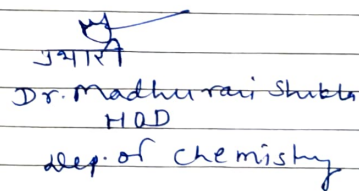 प्रभारी
Dr. Madhurani Shukla
HOD
Dep. of chemistry